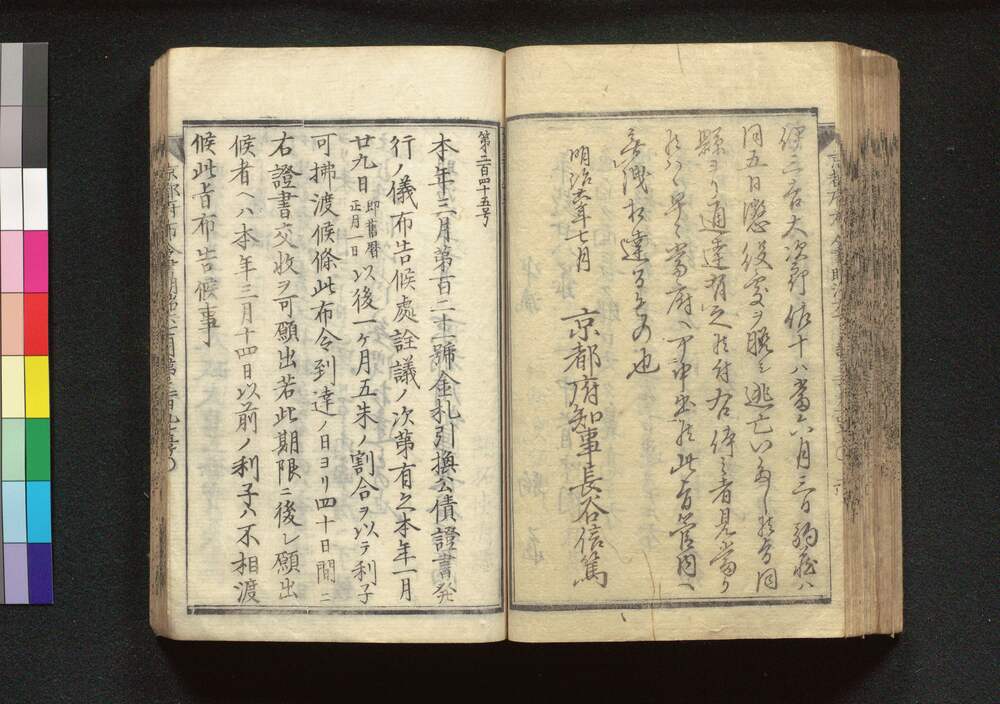 伊三吉大次郎依十八當六月三日
同五日懲役處ヲ脱シ逃亡いたし候旨同
縣ヨリ通達有之候付右侔之者見當リ
候ハヽ早々當府ヘ可申出候此旨管内ヘ
無洩相達るもの也
明治六年七月
京都府知事長谷信篤
第二百四十五号
本年三月第百二十一號金札引換公債證書発
行ノ儀布告候處詮議ノ次第有之本年一月
廿九日即舊暦正月一日以後一ヶ月五朱ノ割合ヲ以テ利子
可拂渡候條此布令到達ノ日ヨリ四十日間ニ
右證書交收ヲ可願出若此期限ニ後レ願出
候者ヘハ本年三月十四日以前ノ利子ハ不相渡
候此旨布告候事